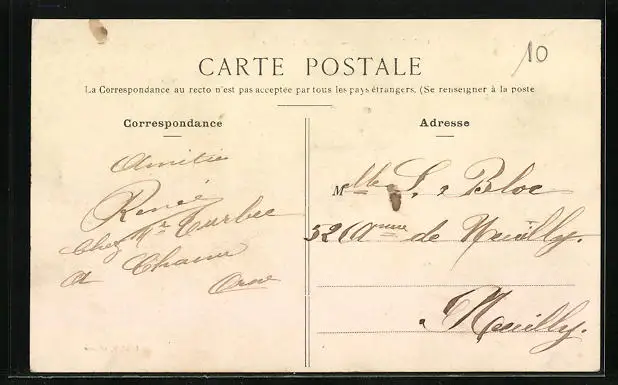 10
CARTE POSTALE
La Correspondance au recto n'est pas acceptée par tous les pays étrangers. (Se renseigner à la poste
Correspondance
Amitié
René
Chez Mr Turbec
A Cham
Orne
Adresse
Mlle S. Bloc
52 Anue de Neuilly.
à Neuilly.